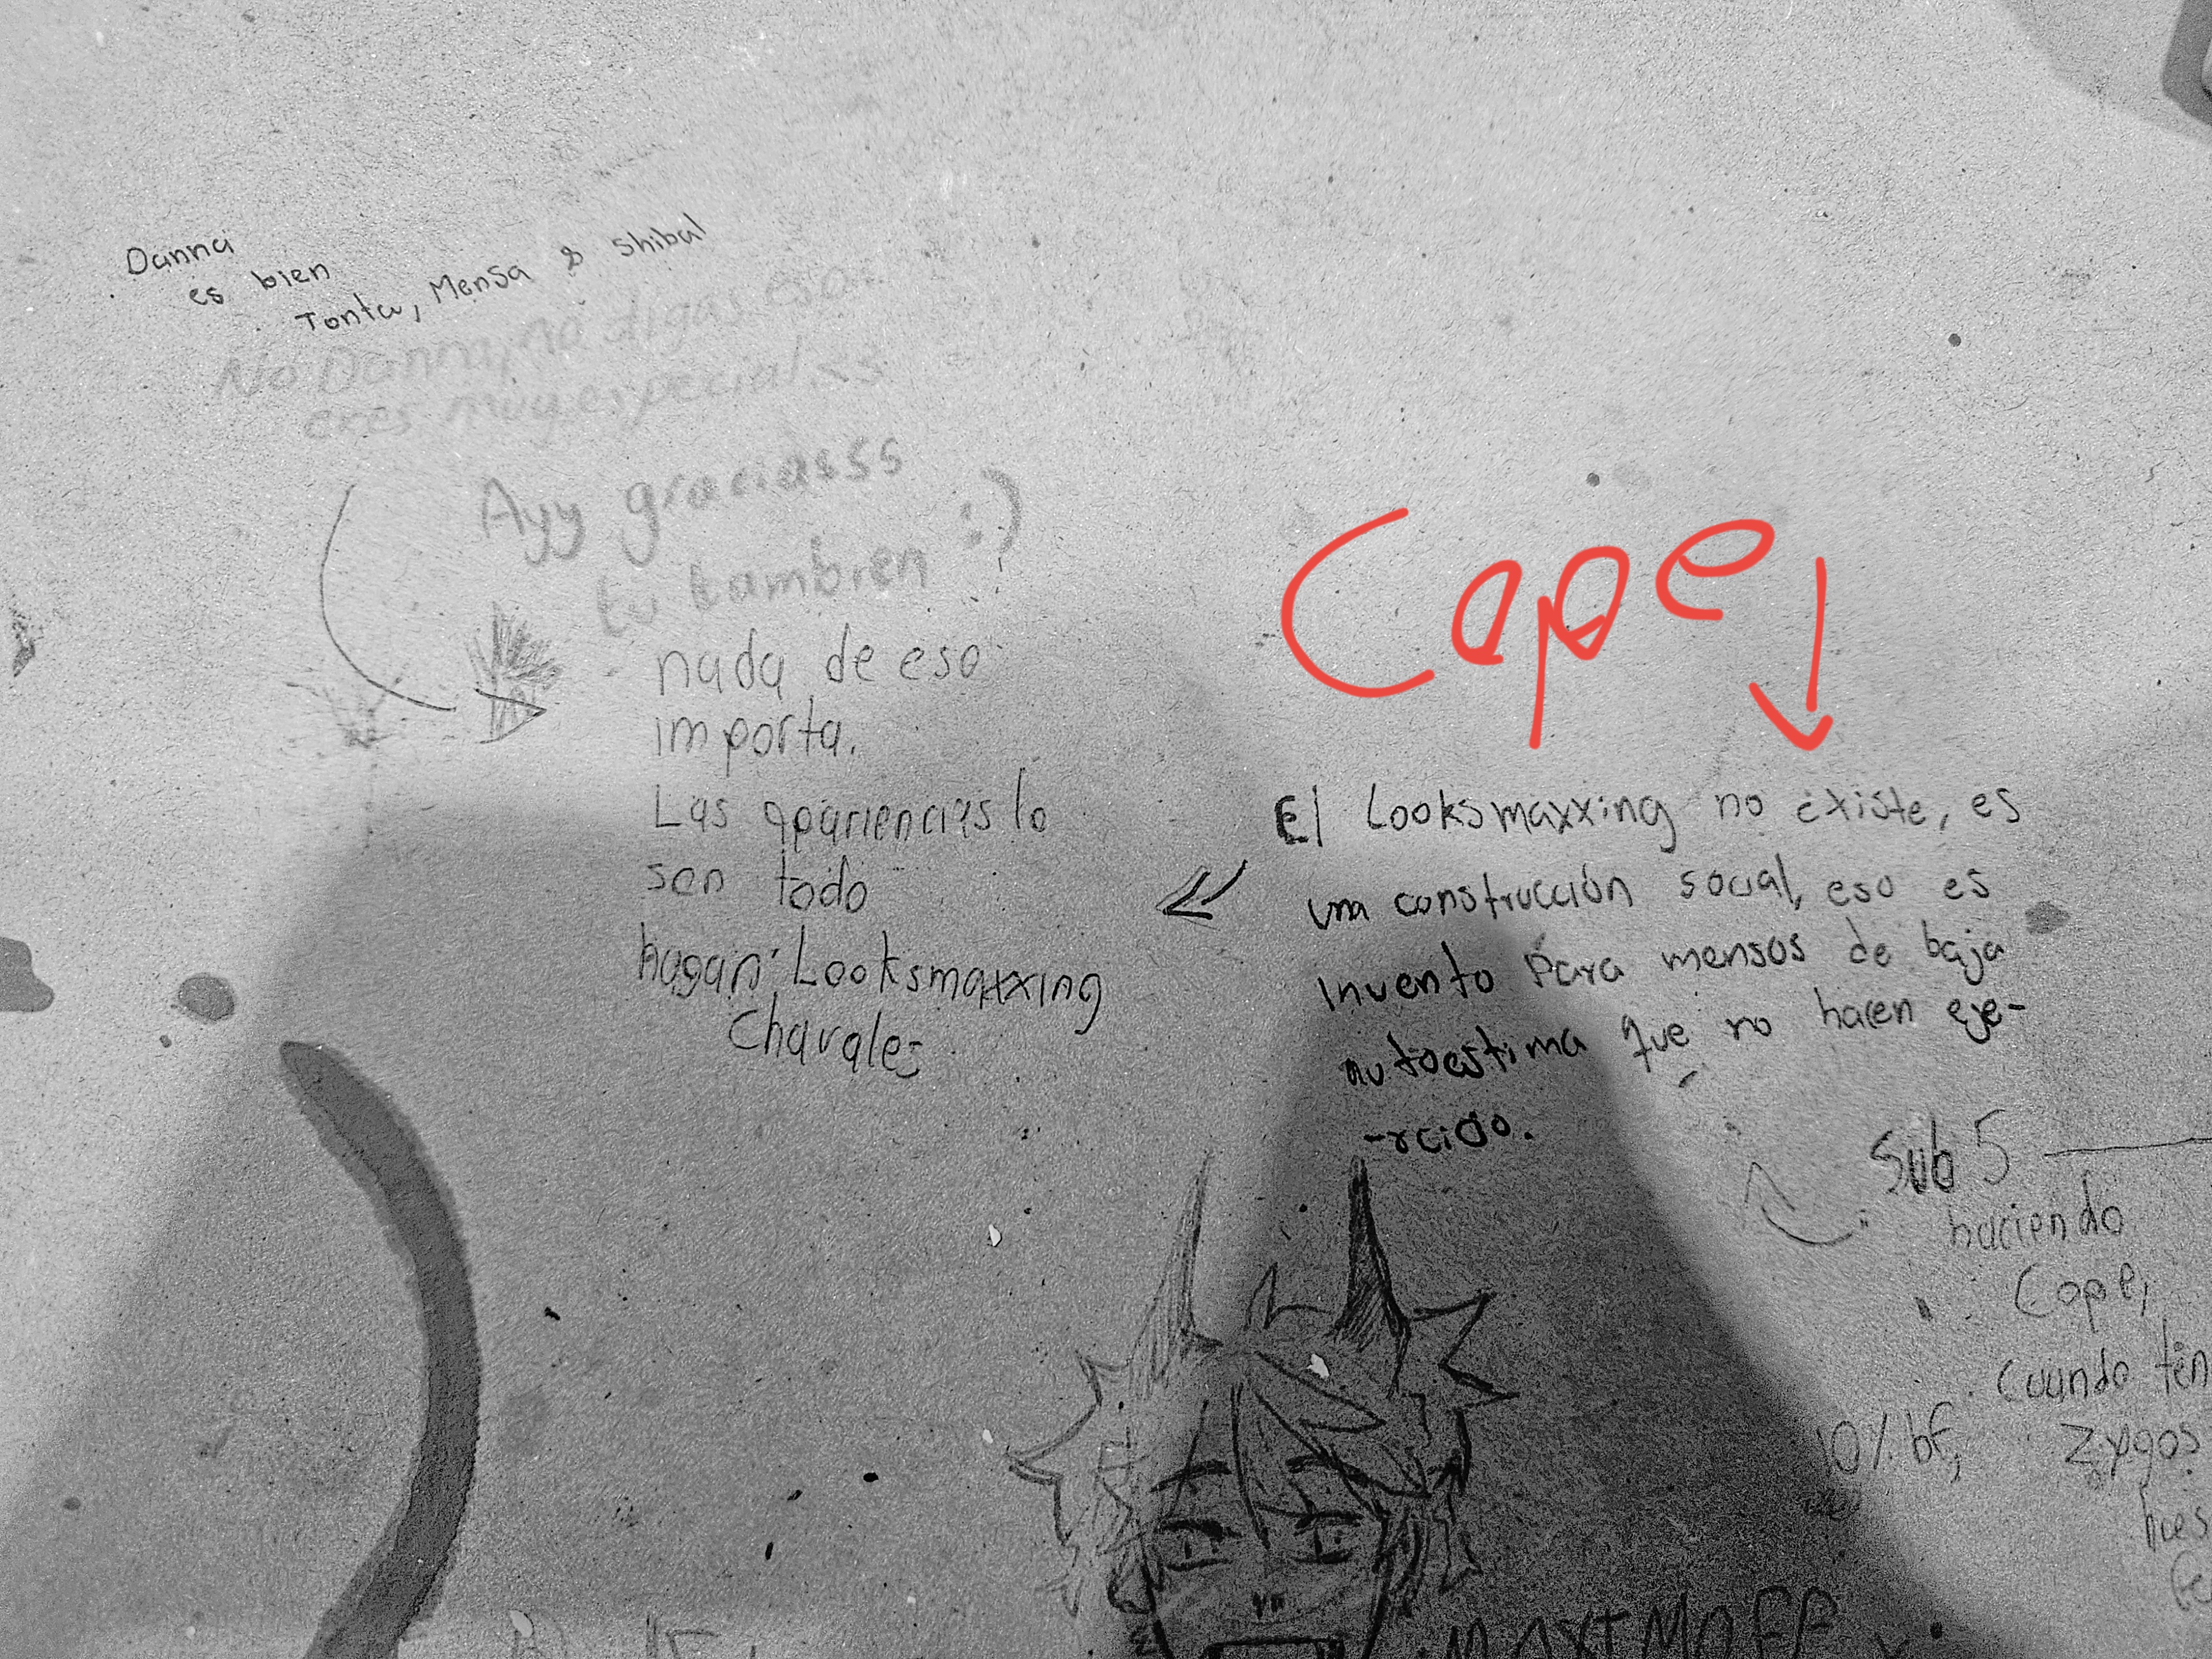 Danna
es bien
Tonta, Mensa & shibal
No Danna, no digas eso
eres muy especial <3
Ayy graciasss
tu tambien :)
nada de eso
importa.
Las apariencias lo
son todo
hagan Looksmaxxing
Chavales
Cope
El Looksmaxxing no existe, es
una construcción social, eso es
invento para mensos de baja
autoestima que no hacen eje-
-rcicio.
Sub 5
haciendo
Cope,
Cuando ten
10% bf, Zygos
hues
MAXIMOFF